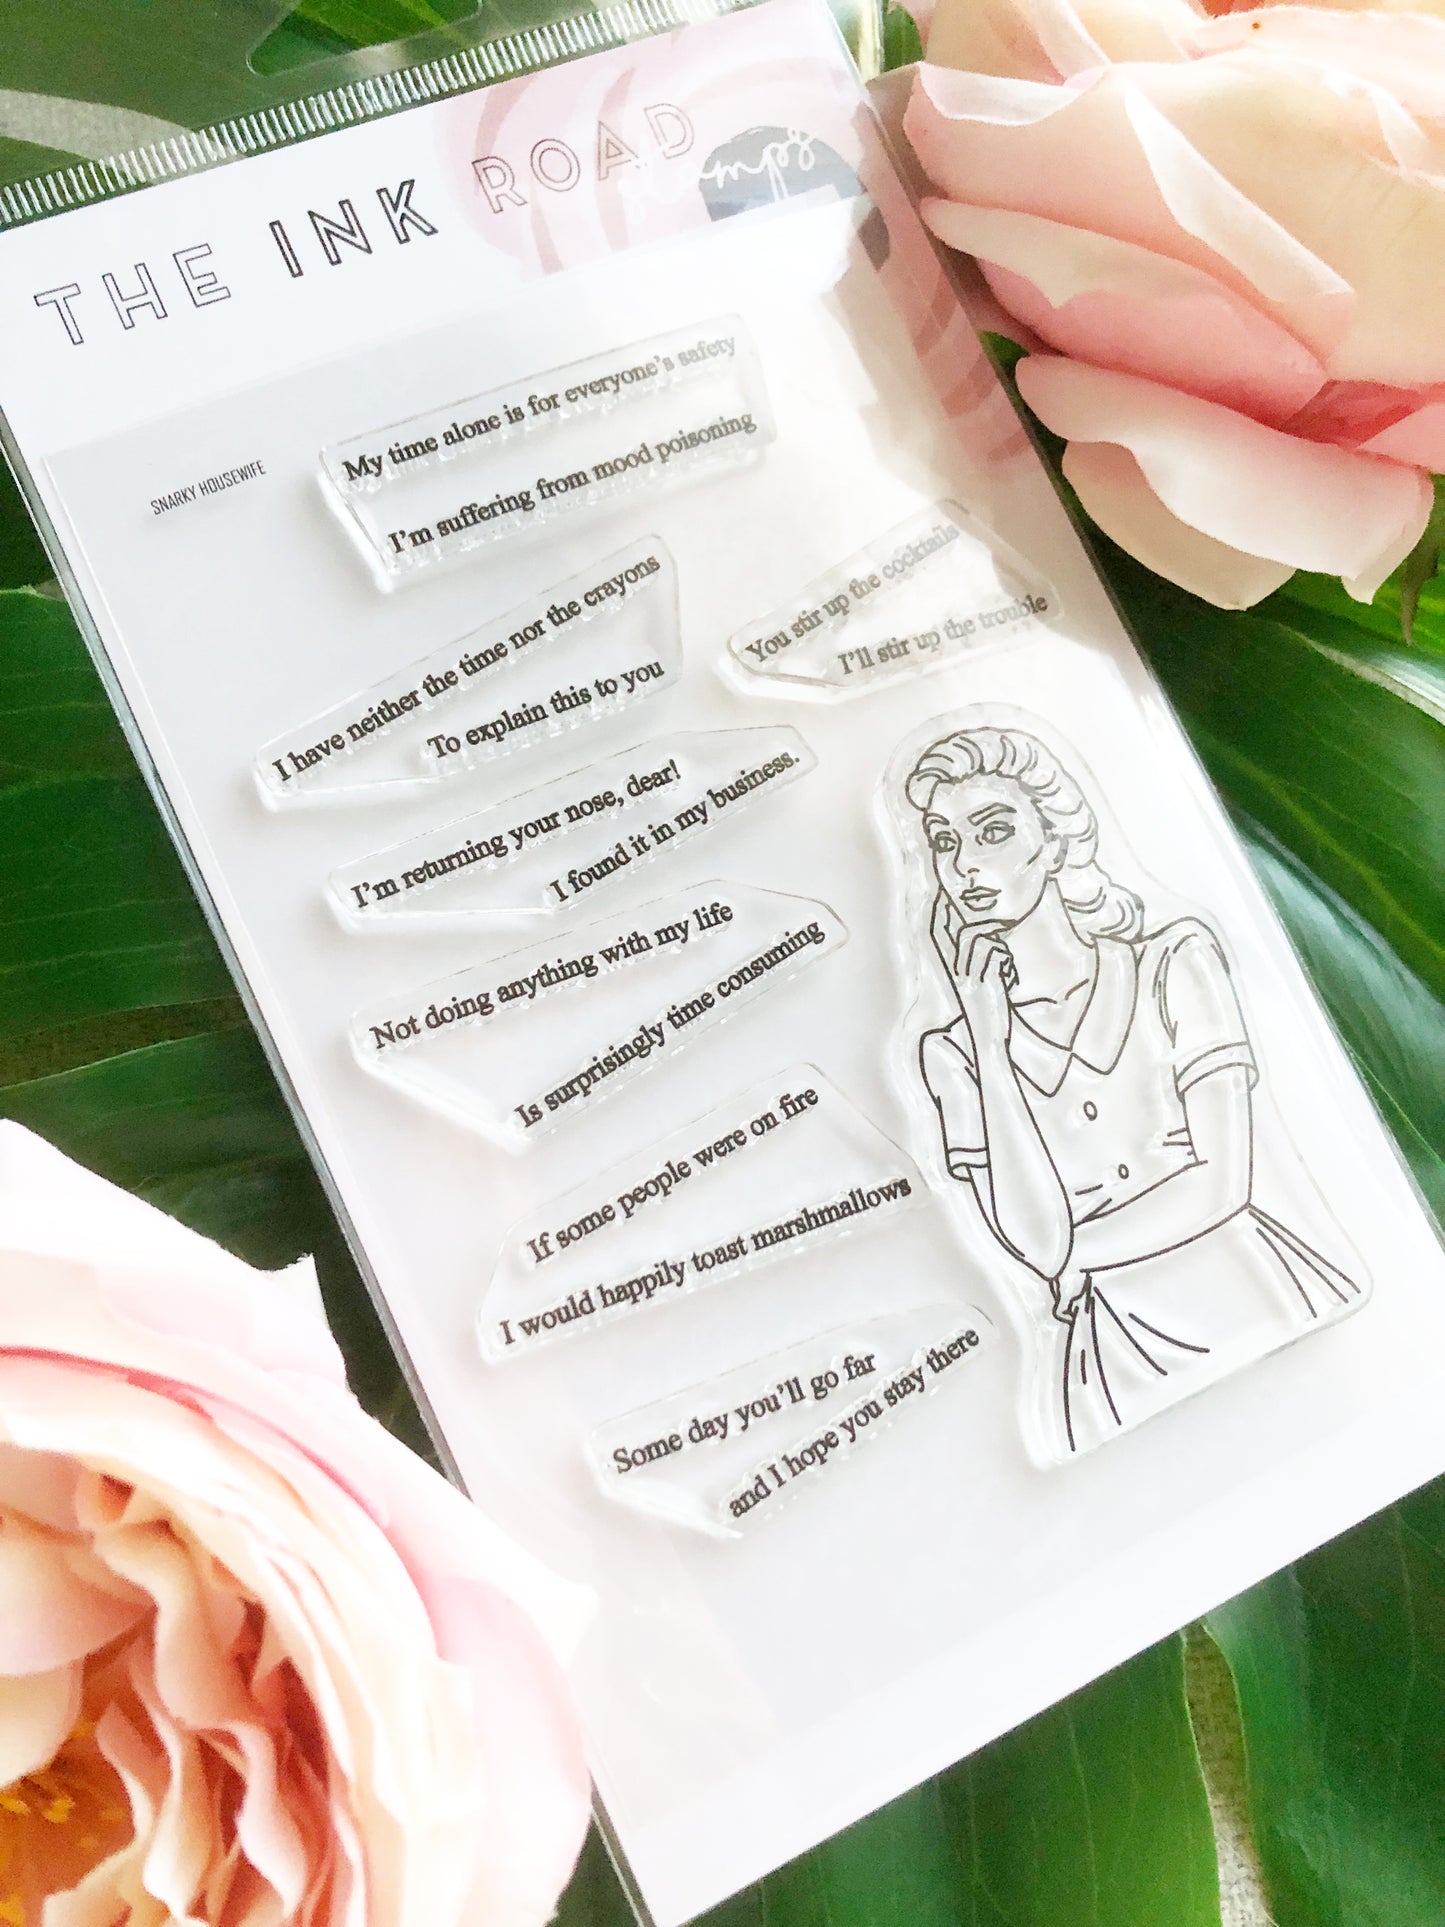 THE INK ROAD
stamps
SNARKY HOUSEWIFE
My time alone is for everyone's safety
I'm suffering from mood poisoning
I have neither the time nor the crayons
To explain this to you
You stir up the cocktails
I'll stir up the trouble
I'm returning your nose, dear!
I found it in my business.
Not doing anything with my life
Is surprisingly time consuming
If some people were on fire
I would happily toast marshmallows
Some day you'll go far
and I hope you stay there